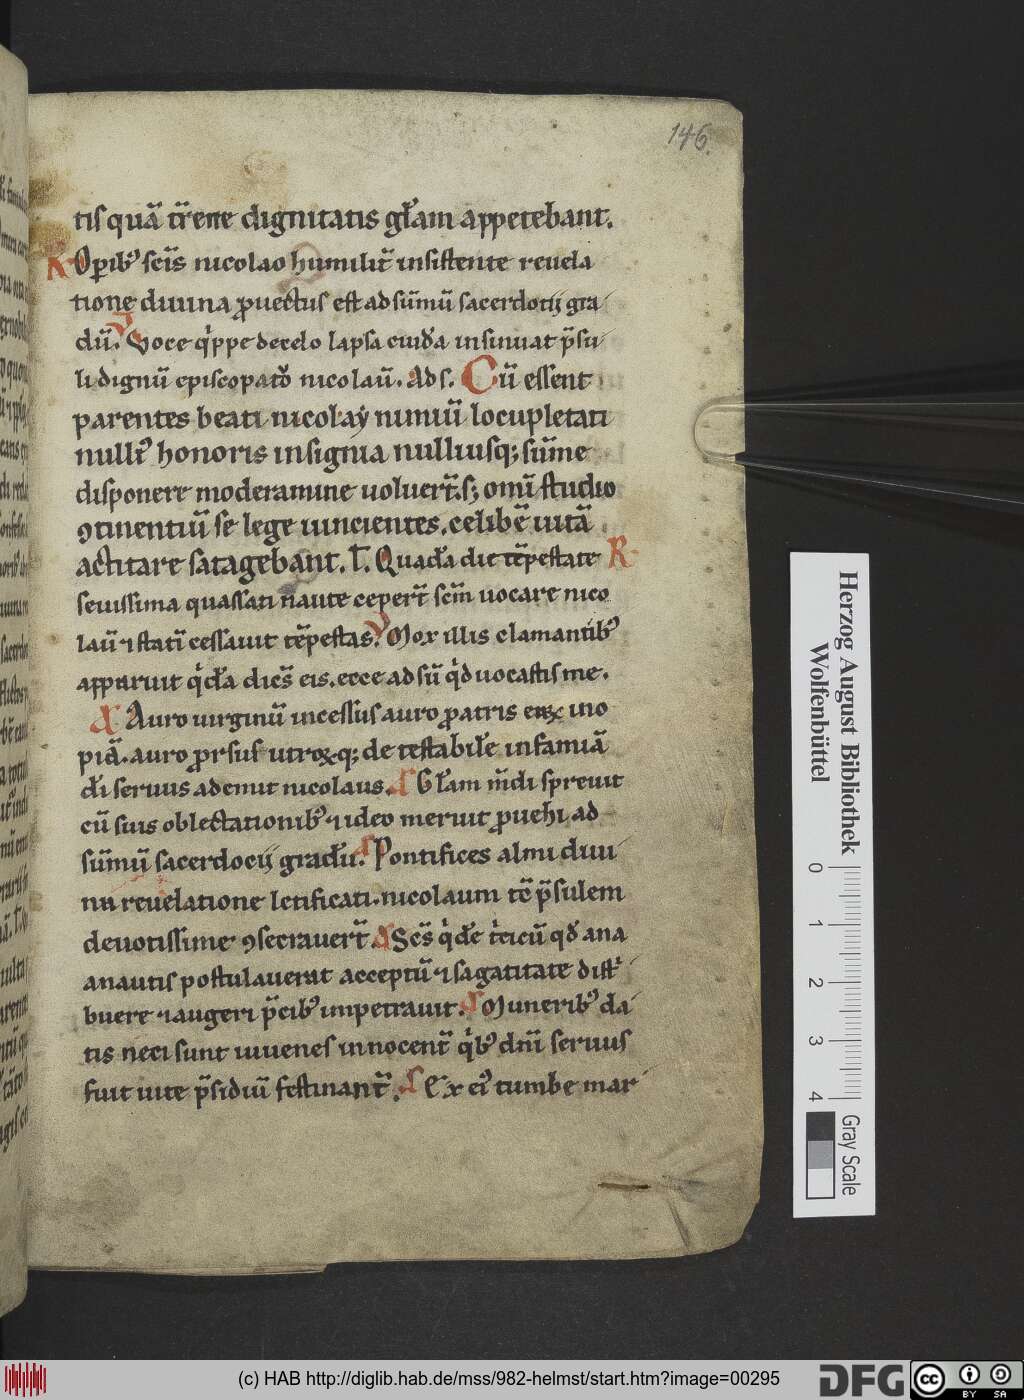 146.
tis quā tr̄ene dignitatis gl̄am appetebant.
R Op̄ib9 sc̄is nicolao humilit̄ insistente reuela
tione diuina ꝓuectus est ad sūmū sacerdotij gra
dū. V Voce q̍ppe de celo lapsa cuid̄a insinuat p̄su
li dignū episcopatō nicolaū. Ad s. Cū essent
parentes beati nicolaẏ nimiū locupletati
nulli9 honoris insignia nulliusq; sūme
disponere moderamine uoluer̄t. s; om̄i studio
ꝯtinentiū se lege uincientes. celibē uitā
actitare satagebant. l̄. Quad̄a die tēpestate R
seuissima quassati naute ceper̄t sc̄m uocare nico
laū ⁊ statī cessauit tēpestas. V Mox illis clamantib9
apparuit q̍d̄a dicēs eis. ecce adsū q̍d uocastis me.
A Auro uirginū incestus auro patris eaꝝ ino
piā. auro ꝓrsus utroꝝq; detestabil̄e infamiā
d̄i seruus ademit nicolaus. A Gl̄am m̄di spreuit
cū suis oblectationib9 ⁊ ideo meruit ꝓuehi ad
sūmū sacerdocij gradū. A Pontifices almi diui
na reuelatione letificati. nicolaum tē p̄sulem
deuotissime ꝯsecrauer̄t A Sc̄s q̍de t̍ticū qd̄ a na
a nautis postulauerat acceptū ⁊ sagatitate dist̍
buere ⁊ augeri p̄cib9 impetrauit. A Muneribꝰ da
tis neci sunt iuuenes innocent̄ q̍b9 dn̄i seruus
fuit uite p̄sidiū festinant̄. A Ex ei9 tumbe mar
Herzog August Bibliothek
Wolfenbüttel
0
1
2
3
4
Gray Scale
(c) HAB http://diglib.hab.de/mss/982-helmst/start.htm?image=00295
DFG
cc
BY SA